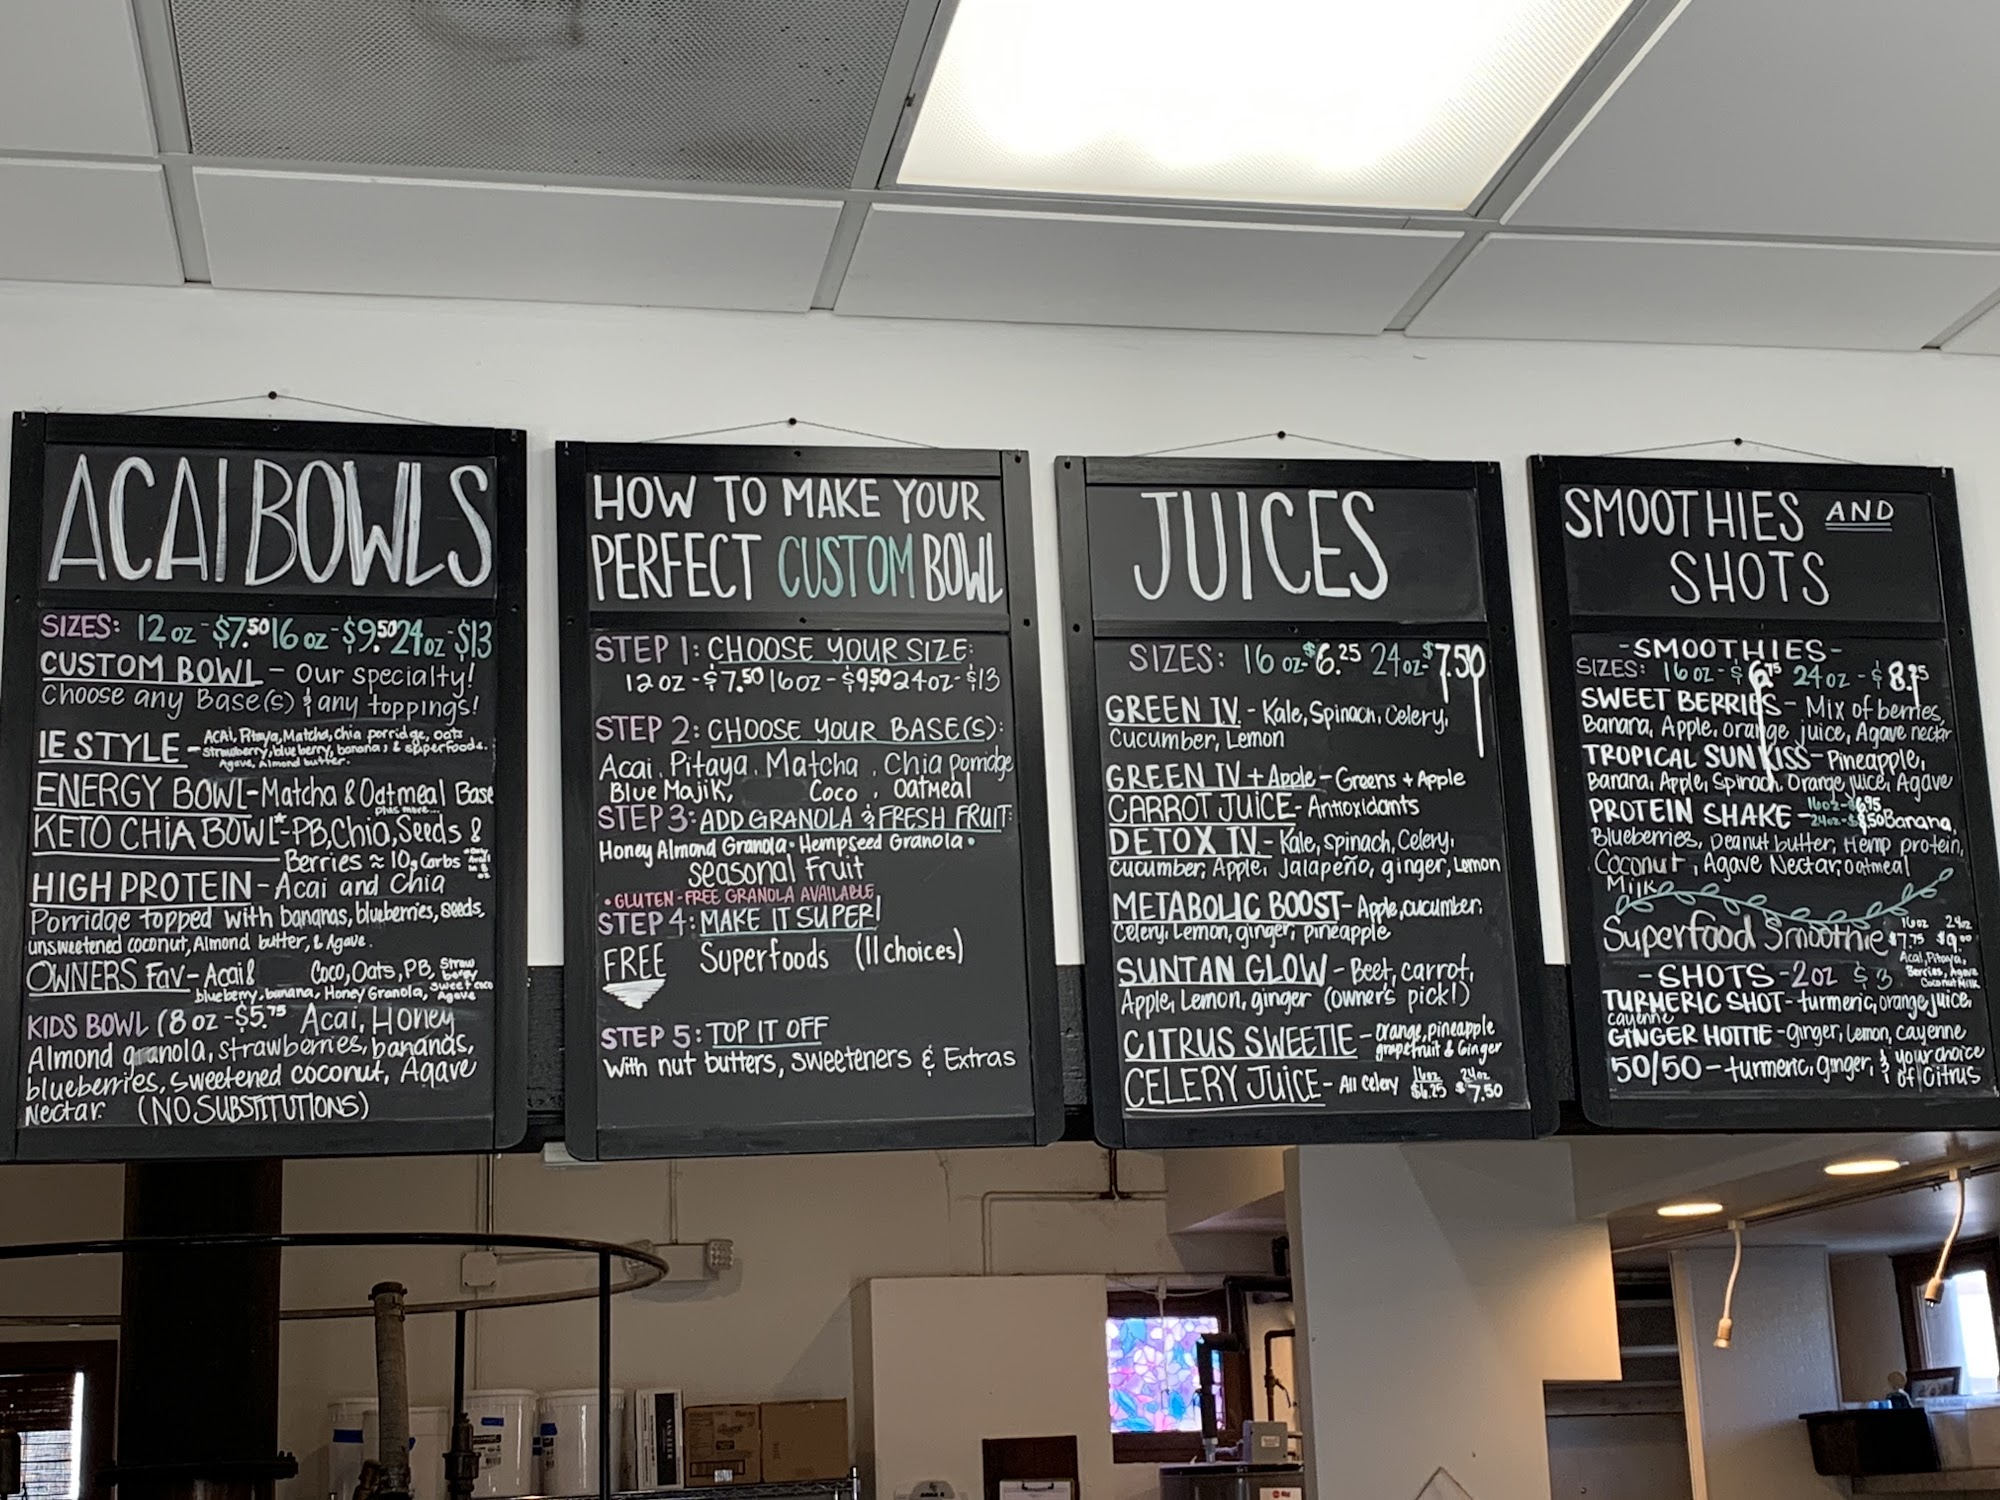 ACAI BOWLS
SIZES: 12 oz - $7.50 16 oz - $9.50 24 oz - $13
CUSTOM BOWL - Our specialty!
Choose any Base(s) & any toppings!
IE STYLE - ACAI, Pitaya, Matcha, chia porridge, oats
strawberry, blueberry, banana, & superfoods.
Agave, Almond butter.
ENERGY BOWL - Matcha & Oatmeal Base
plus more...
KETO CHIA BOWL* - PB, Chia, Seeds &
Berries ≈ 10g Carbs
HIGH PROTEIN - Acai and Chia
Porridge topped with bananas, blueberries, seeds,
unsweetened coconut, Almond butter, & Agave.
OWNERS Fav - Acai & Coco, Oats, PB, Strawberry
blueberry, banana, Honey Granola, sweet coco
Agave
KIDS BOWL (8 oz - $5.75 Acai, Honey
Almond granola, strawberries, bananas,
blueberries, sweetened coconut, Agave
Nectar. (NO SUBSTITUTIONS)
HOW TO MAKE YOUR
PERFECT CUSTOM BOWL
STEP 1: CHOOSE YOUR SIZE:
12 oz - $7.50 16 oz - $9.50 24 oz - $13
STEP 2: CHOOSE YOUR BASE(S):
Acai, Pitaya, Matcha, Chia porridge
Blue Majik, Coco, Oatmeal
STEP 3: ADD GRANOLA & FRESH FRUIT:
Honey Almond Granola • Hempseed Granola •
seasonal Fruit
• GLUTEN-FREE GRANOLA AVAILABLE
STEP 4: MAKE IT SUPER!
FREE Superfoods (11 choices)
STEP 5: TOP IT OFF
With nut butters, sweeteners & Extras
JUICES
SIZES: 16 oz - $6.25 24 oz - $7.50
GREEN IV - Kale, Spinach, Celery,
Cucumber, Lemon
GREEN IV + Apple - Greens + Apple
CARROT JUICE - Antioxidants
DETOX IV - Kale, spinach, Celery,
cucumber, Apple, Jalapeño, ginger, Lemon
METABOLIC BOOST - Apple, cucumber,
Celery, Lemon, ginger, pineapple
SUNTAN GLOW - Beet, carrot,
Apple, Lemon, ginger (owner's pick!)
CITRUS SWEETIE - orange, pineapple
grapefruit & Ginger
CELERY JUICE - All Celery 16oz $6.25 24oz $7.50
SMOOTHIES AND
SHOTS
-SMOOTHIES-
SIZES: 16 oz - $6.75 24 oz - $8.25
SWEET BERRIES - Mix of berries,
Banana, Apple, orange juice, Agave nectar
TROPICAL SUNKISS - Pineapple,
Banana, Apple, Spinach, Orange juice, Agave
PROTEIN SHAKE - 16oz - $6.95
24oz - $8.50 Banana,
Blueberries, peanut butter, Hemp protein,
Coconut, Agave Nectar, oatmeal
Milk
Superfood Smoothie 16oz $7.75 24oz $9.00
Acai, Pitaya,
Berries, Agave
Coconut Milk
-SHOTS - 2oz $3
TURMERIC SHOT - turmeric, orange juice,
cayenne
GINGER HOTTIE - Ginger, Lemon, cayenne
50/50 - turmeric, ginger, & your choice
of Citrus